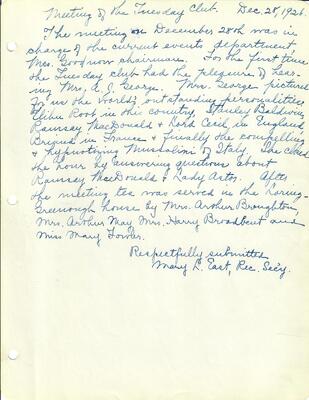 Meeting of the Tuesday Club. Dec. 28, 1926.
The meeting on December 28th was in
charge of the current events department,
Mrs. Goodnow chairman. For the first time
the Tuesday club had the pleasure of hear-
ing Mrs. A. J. George. Mrs. George pictured
for us the world's outstanding personalities,
Elihu Root in this country, Stanley Baldwin,
Ramsay MacDonald & Lord Cecil in England,
Briand in France & finally the compelling
& hypnotizing Mussolini of Italy. She closed
the hour by answering questions about
Ramsay MacDonald & Lady Astor. After
the meeting tea was served in the Loring-
Greenough house by Mrs. Arthur Broughton,
Mrs. Arthur May, Mrs. Harry Broadbent and
Miss Mary Fowler.
Respectfully submitted
Mary L. East, Rec. Sec'y.